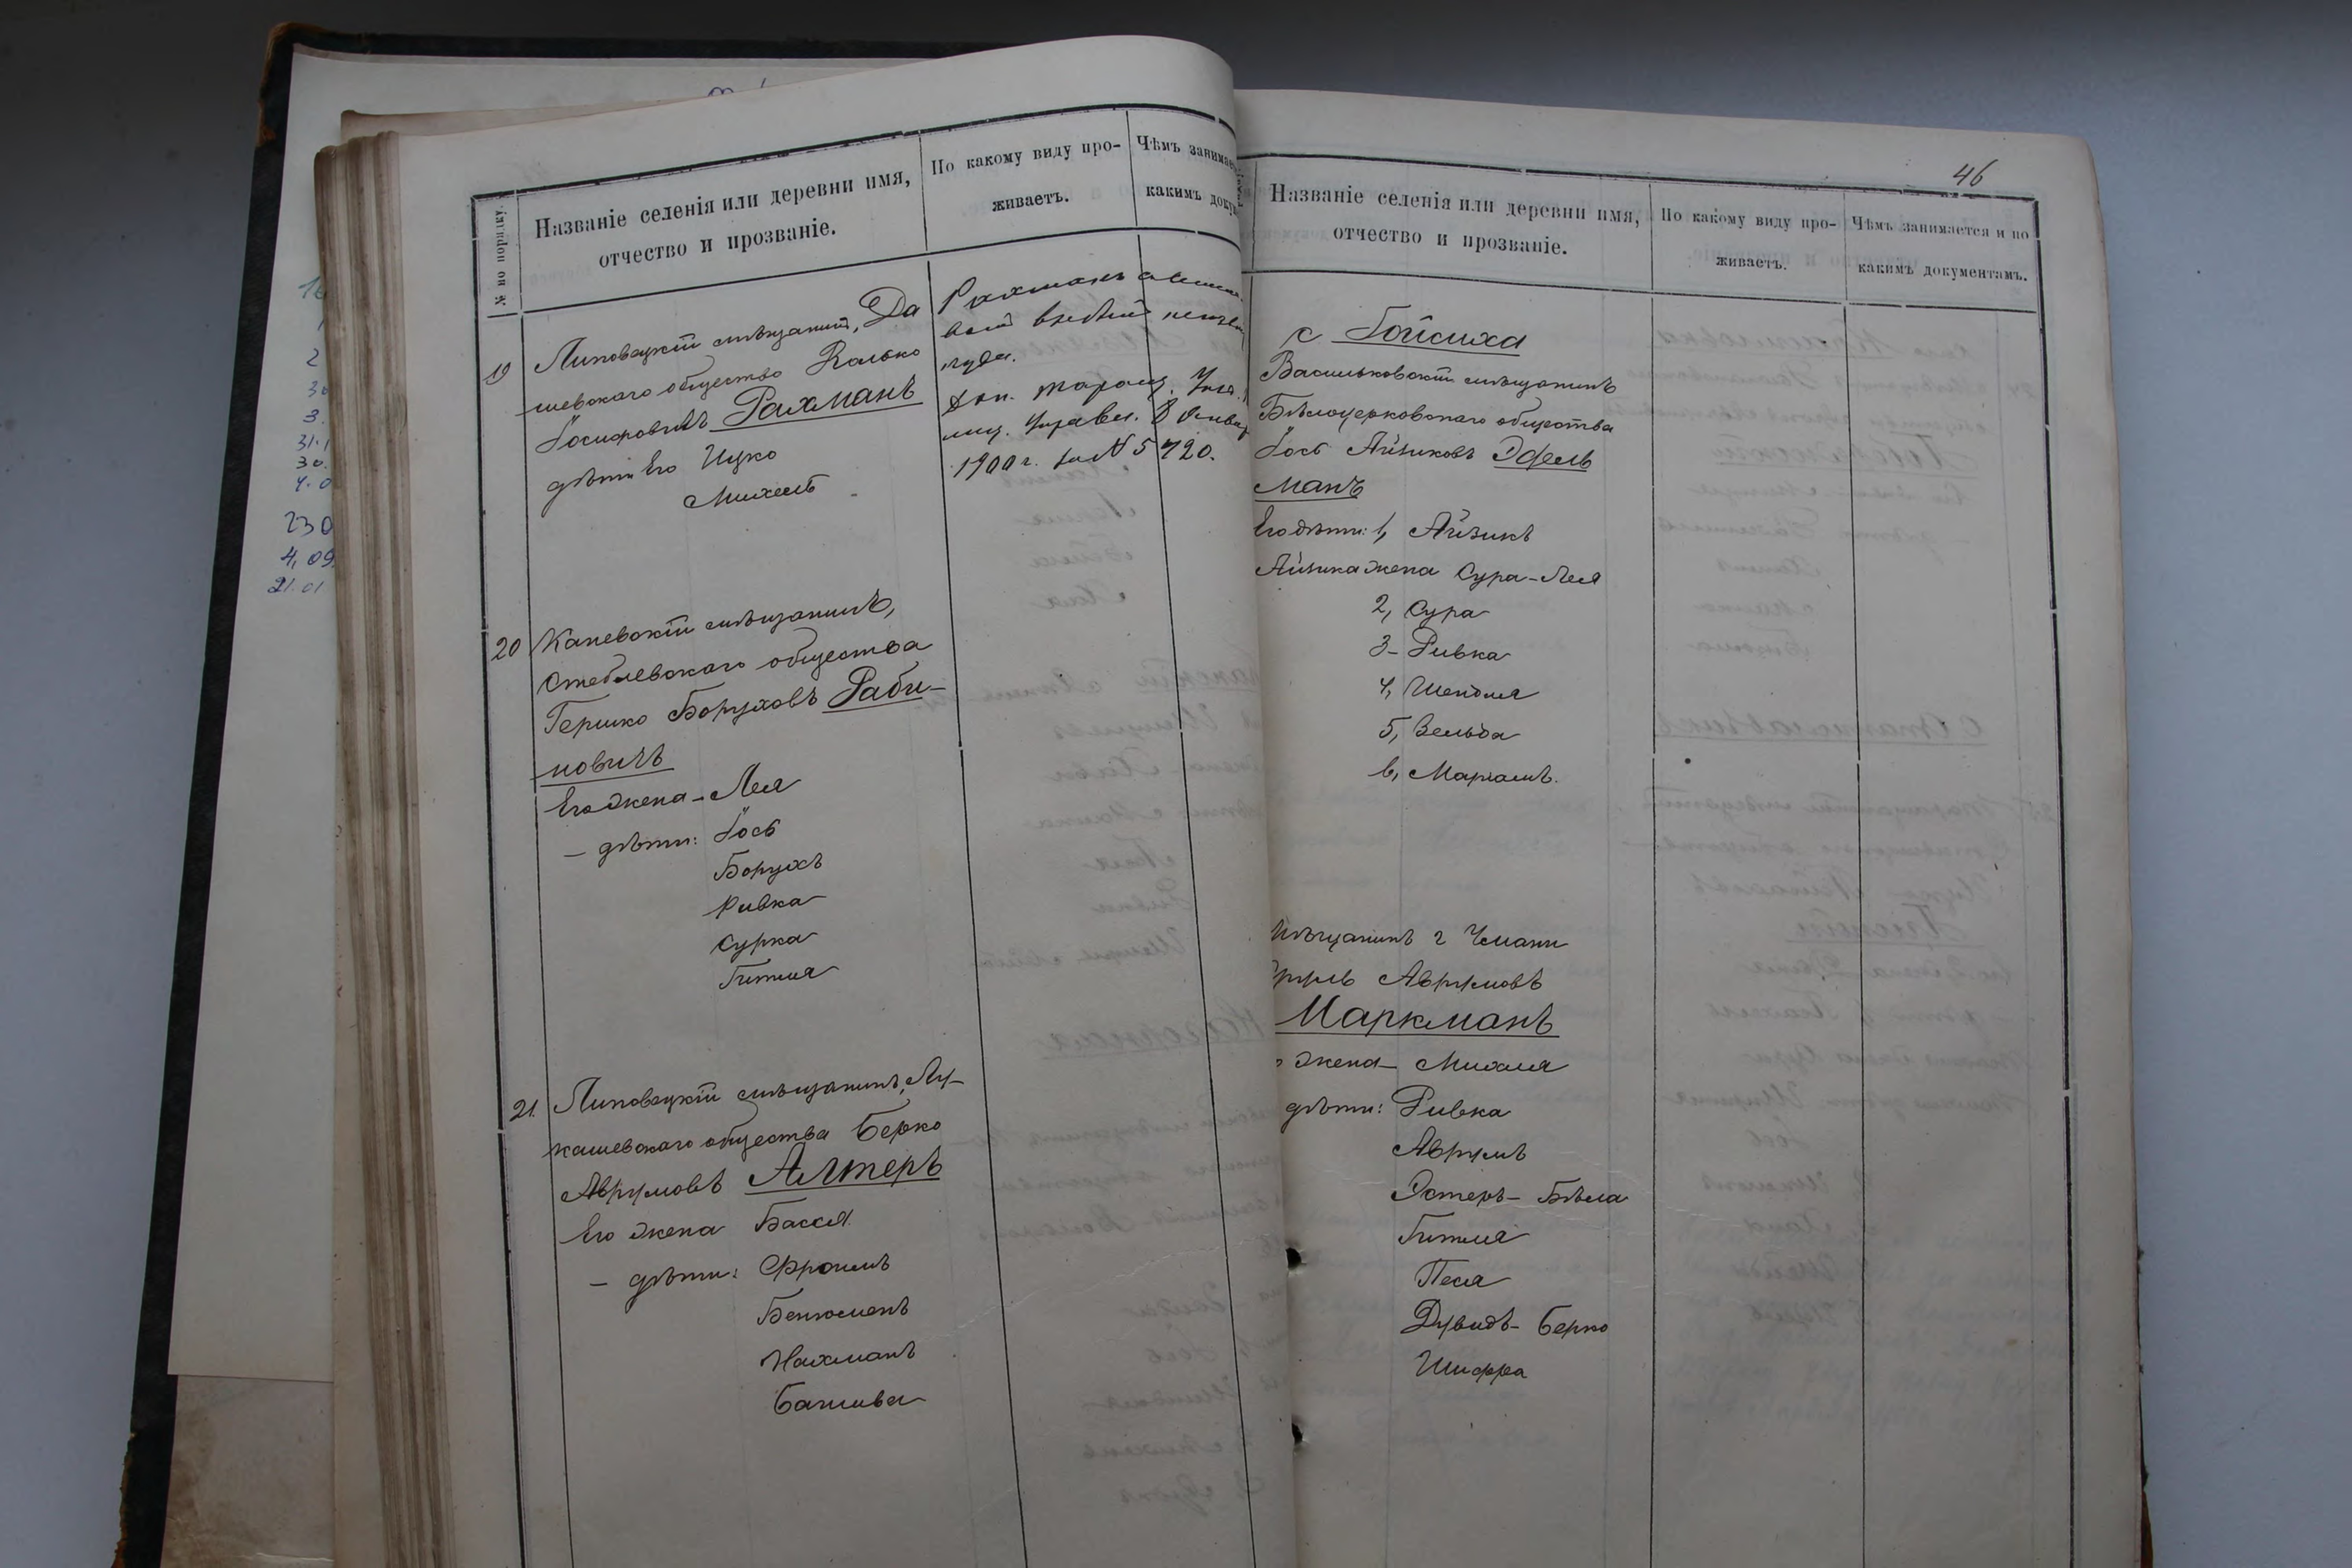 № по порядку.
Названіе селенія или деревни имя,
отчество и прозваніе.
По какому виду про-
живаетъ.
Чѣмъ занимает
какимъ доку
19
Липовецкій мѣщанин, Да
шевскаго общество Волько
Іосифовичъ Рахманъ
дѣти Его Ицко
Михель
Рахманъ с
выбылъ
куда.
Доп. Таращ.
Управл. 8 Января
1900 г. за № 5720.
20
Каневскій мѣщанинъ,
Стеблевскаго общества
Гершко Боруховъ Раби-
новичъ
Его жена - Лея
- дѣти: Іось
Борухъ
Ривка
Сурка
Гитля
21.
Липовецкій мѣщанинъ, Лу-
кашевскаго общества Берко
Аврумовъ Алтеръ
Его жена Бася
- дѣти: Фроимъ
Бенюменъ
Нахманъ
Башива
46
Названіе селенія или деревни имя,
отчество и прозваніе.
По какому виду про-
живаетъ.
Чѣмъ занимается и по
какимъ документамъ.
с Бойсиха
Васильковскій мѣщанинъ
Бѣлоцерковскаго общества
Іось Айзиковъ Эдель
манъ
Его дѣти: 1, Айзикъ
Айзика жена Сура-Лея
2, Сура
3- Ривка
4, Шендля
5, Вельва
6, Маріамъ.
Мѣщанинъ г Умани
Сруль Аврумовъ
Маркманъ
жена - Михля
дѣти: Ривка
Аврумъ
Эстеръ - Бѣла
Гитля
Песя
Дувидъ - Берко
Шифра